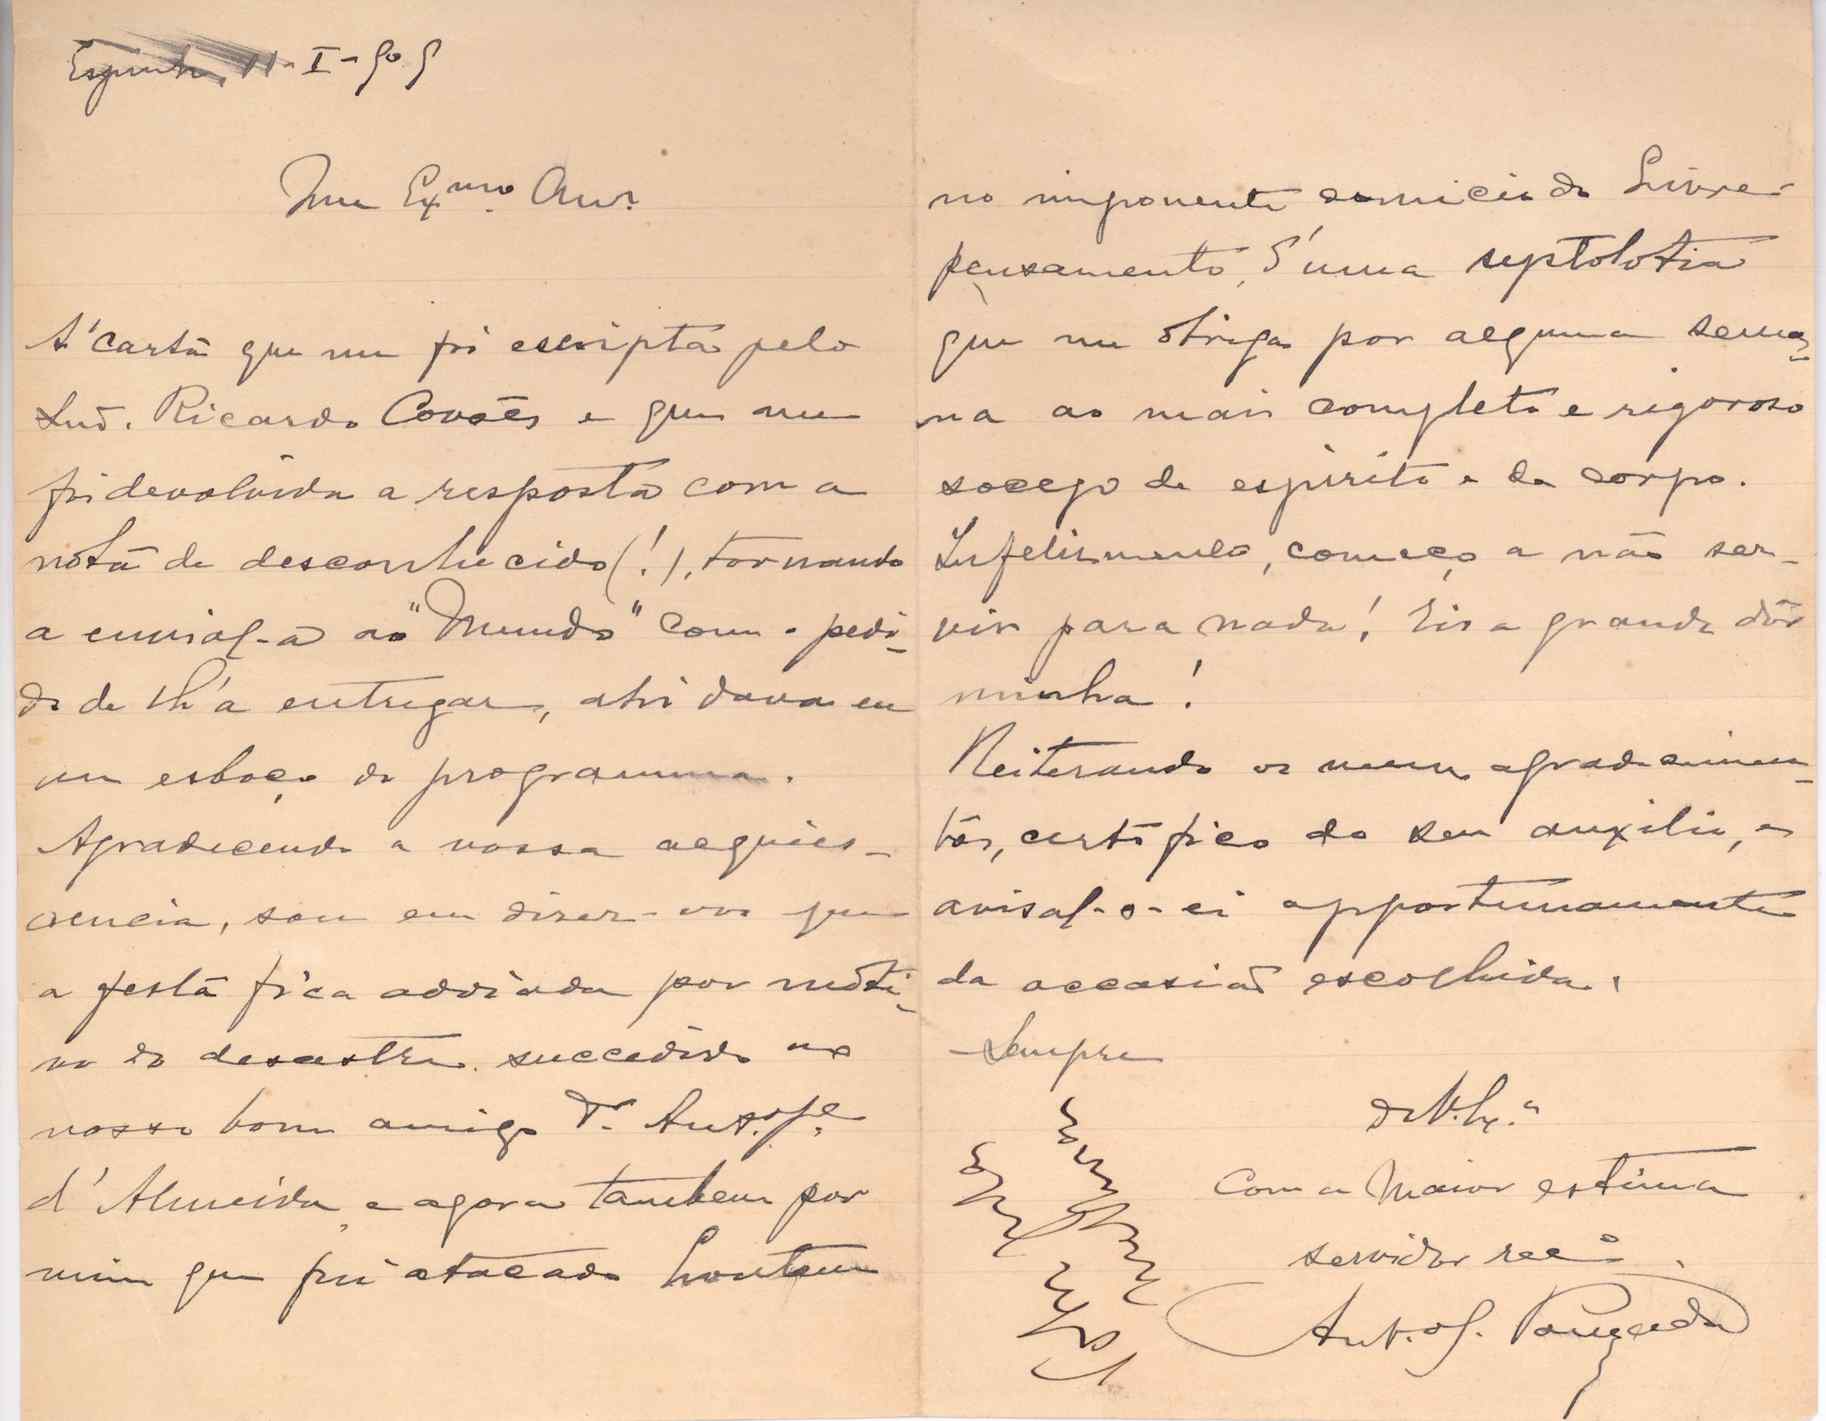 Espinho, 11-I-909
Meu Ex.mo Am.º
A' carta que me foi escripta pelo
Snr. Ricardo Covões e que me
foi devolvida a resposta com a
nota de desconhecido (!), tornando
a envial-a ao "Mundo" com o pedi-
do de lh'a entregar, ahi dava eu
um esboço do programma.
Agradecendo a vossa acquies-
cencia, sou em dizer-vos que
a festa fica addiada por moti-
vo do desastre succedido ao
nosso bom amigo Dr. Ant.º J.e
d'Almeida, e agora tambem por
mim que fui atacado hontem
no imponente comicio do Livre-
pensamento, d'uma
que me obriga por alguma sema-
na ao mais completo e rigoroso
socego de espirito e de corpo.
Infelizmente, começo a não ser-
vir para nada! Eis a grande dôr
minha!
Reiterando os meus agradecimen-
tos, certo fico do seu auxilio, e
avisal-o-ei opportunamente
da occasião escolhida.
Sempre
de V. Ex.ª
Com a maior estima
servidor
Ant. J.